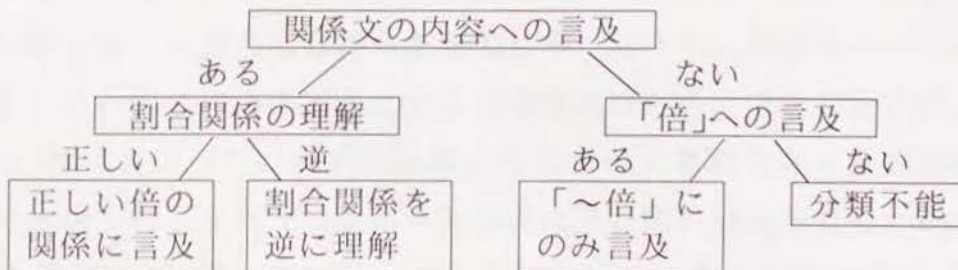 関係文の内容への言及
ある
ない
割合関係の理解
「倍」への言及
正しい
逆
ある
ない
正しい倍の
関係に言及
割合関係を
逆に理解
「～倍」に
のみ言及
分類不能